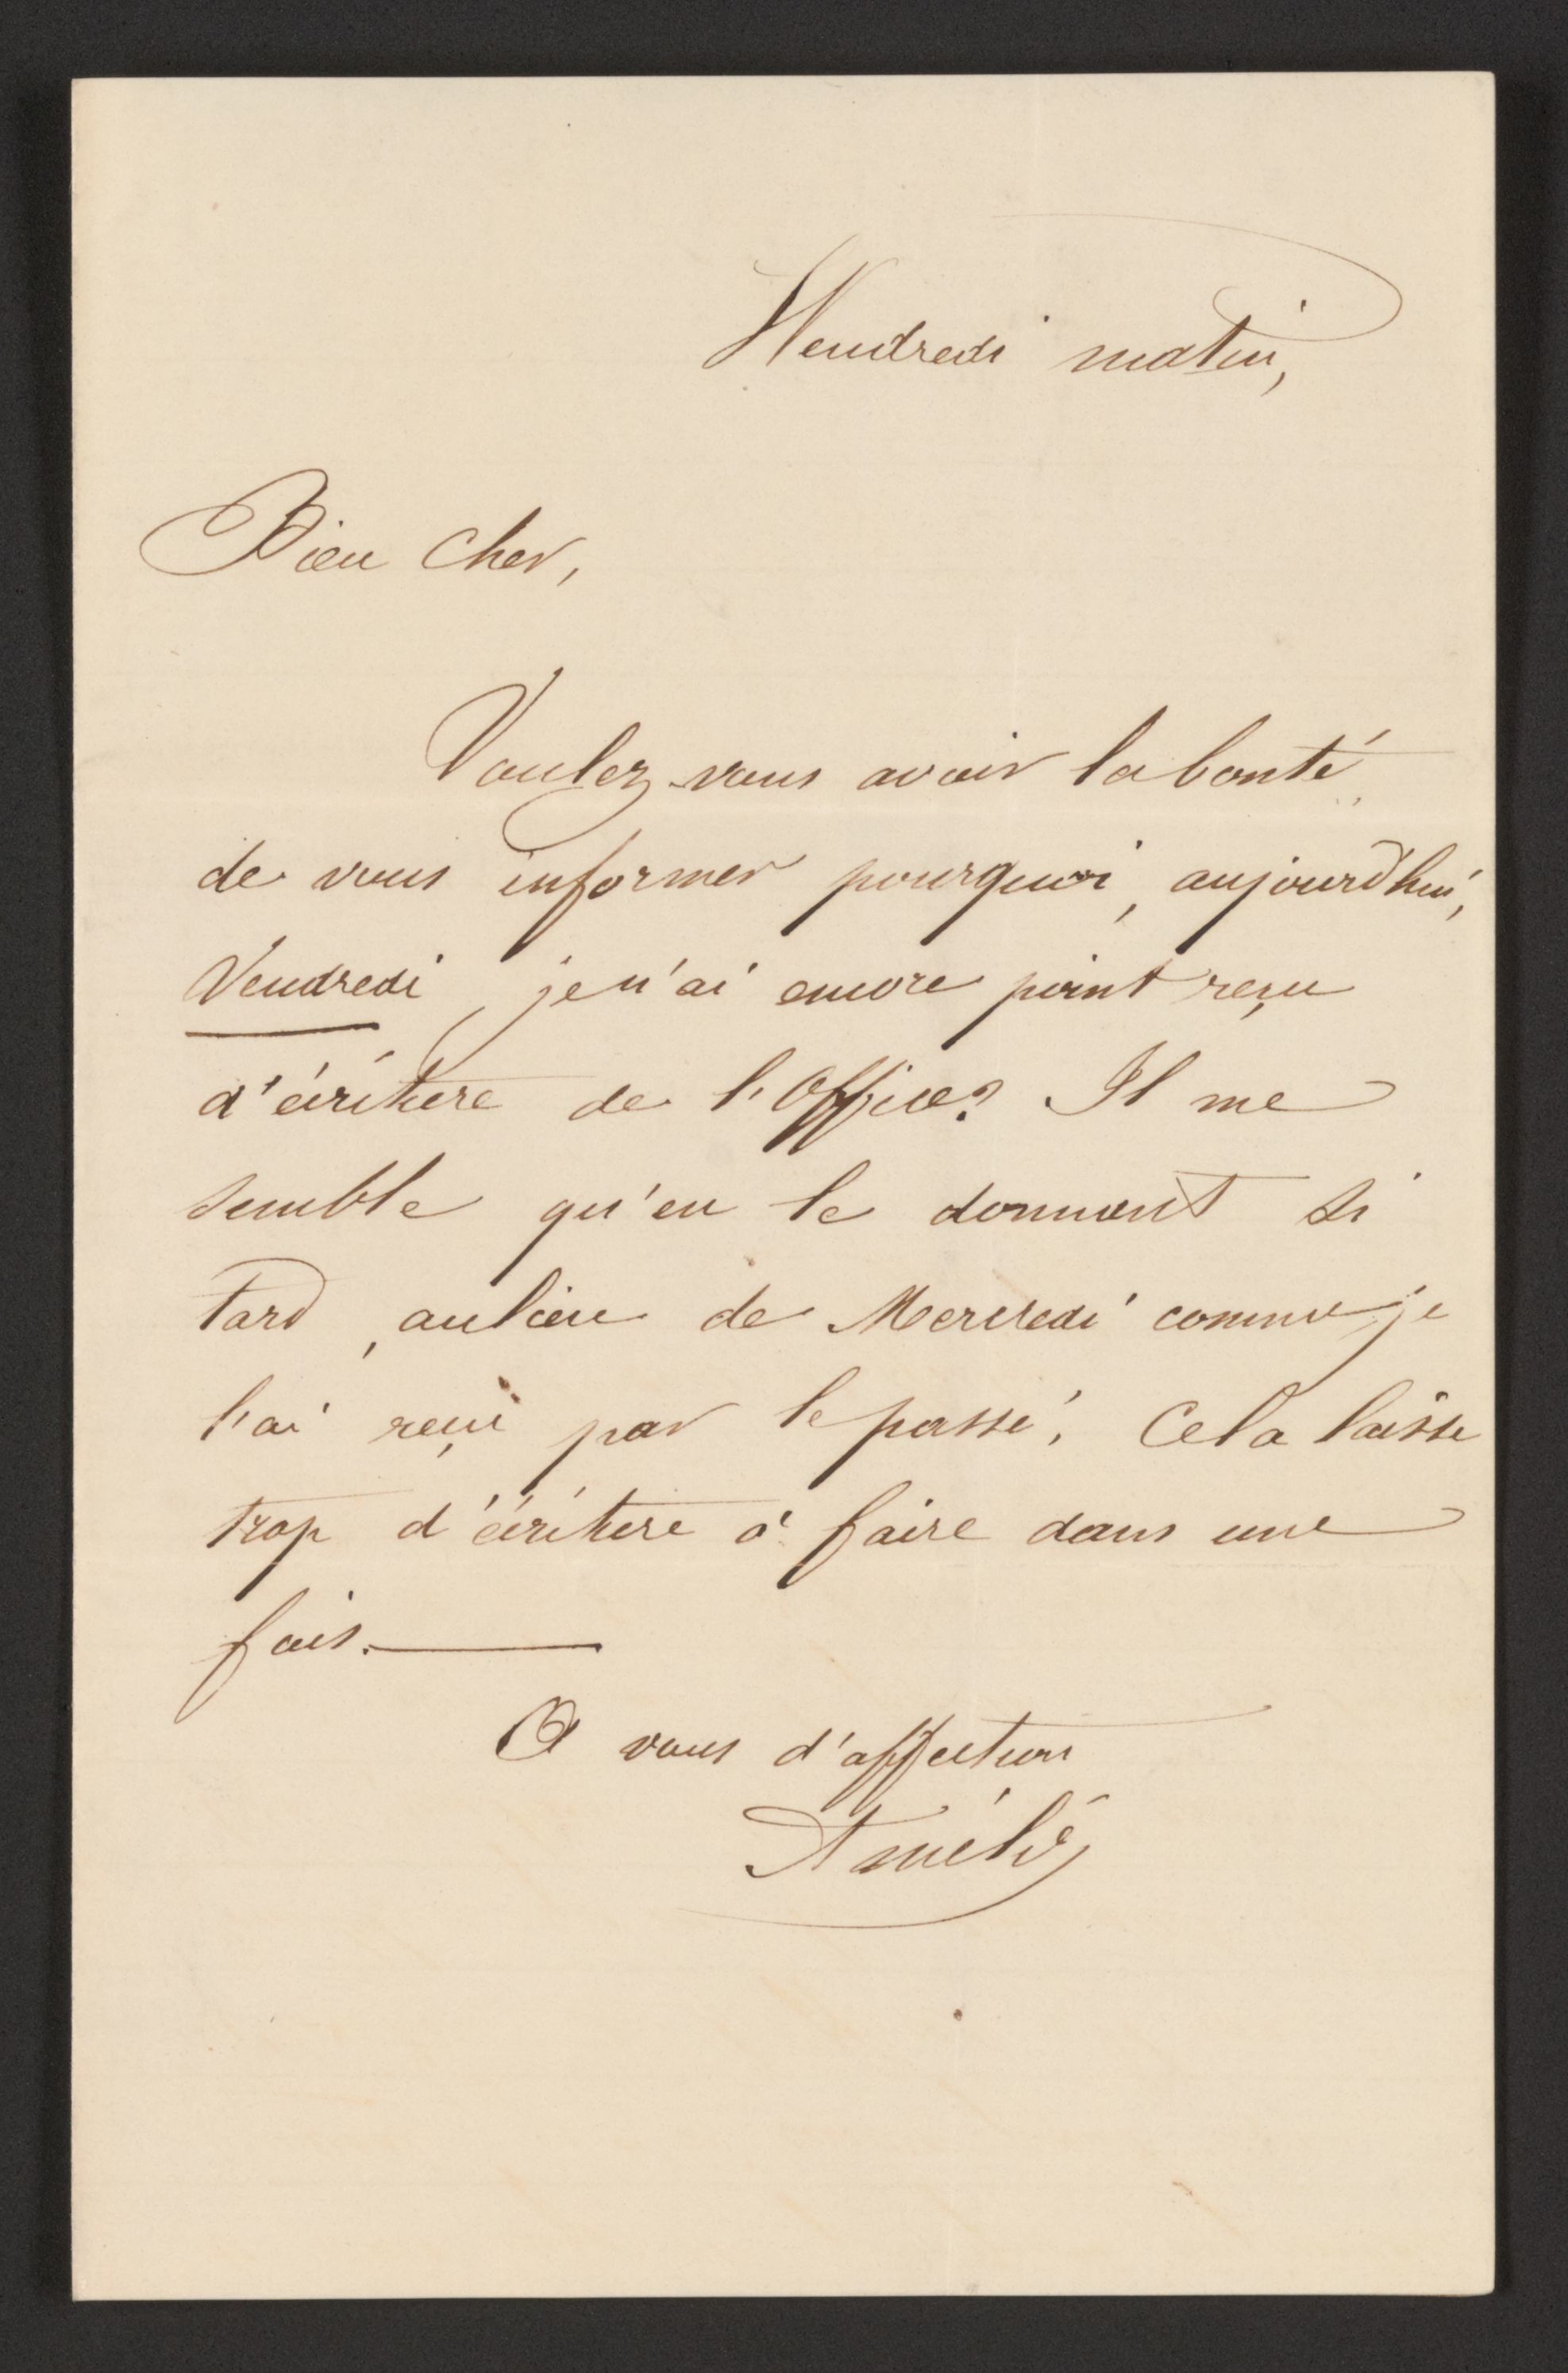 Vendredi matin,
Bien cher,
Voulez-vous avoir la bonté
de vous informer pourquoi, aujourd'hui,
Vendredi, je n'ai encore point reçu
d'écriture de l'Office? Il me
semble qu'en le donnant si
tard, au lieu de Mercredi comme je
l'ai reçu par le passé, Cela laisse
trop d'écriture à faire dans une
fois.
A vous d'affection
Amélie